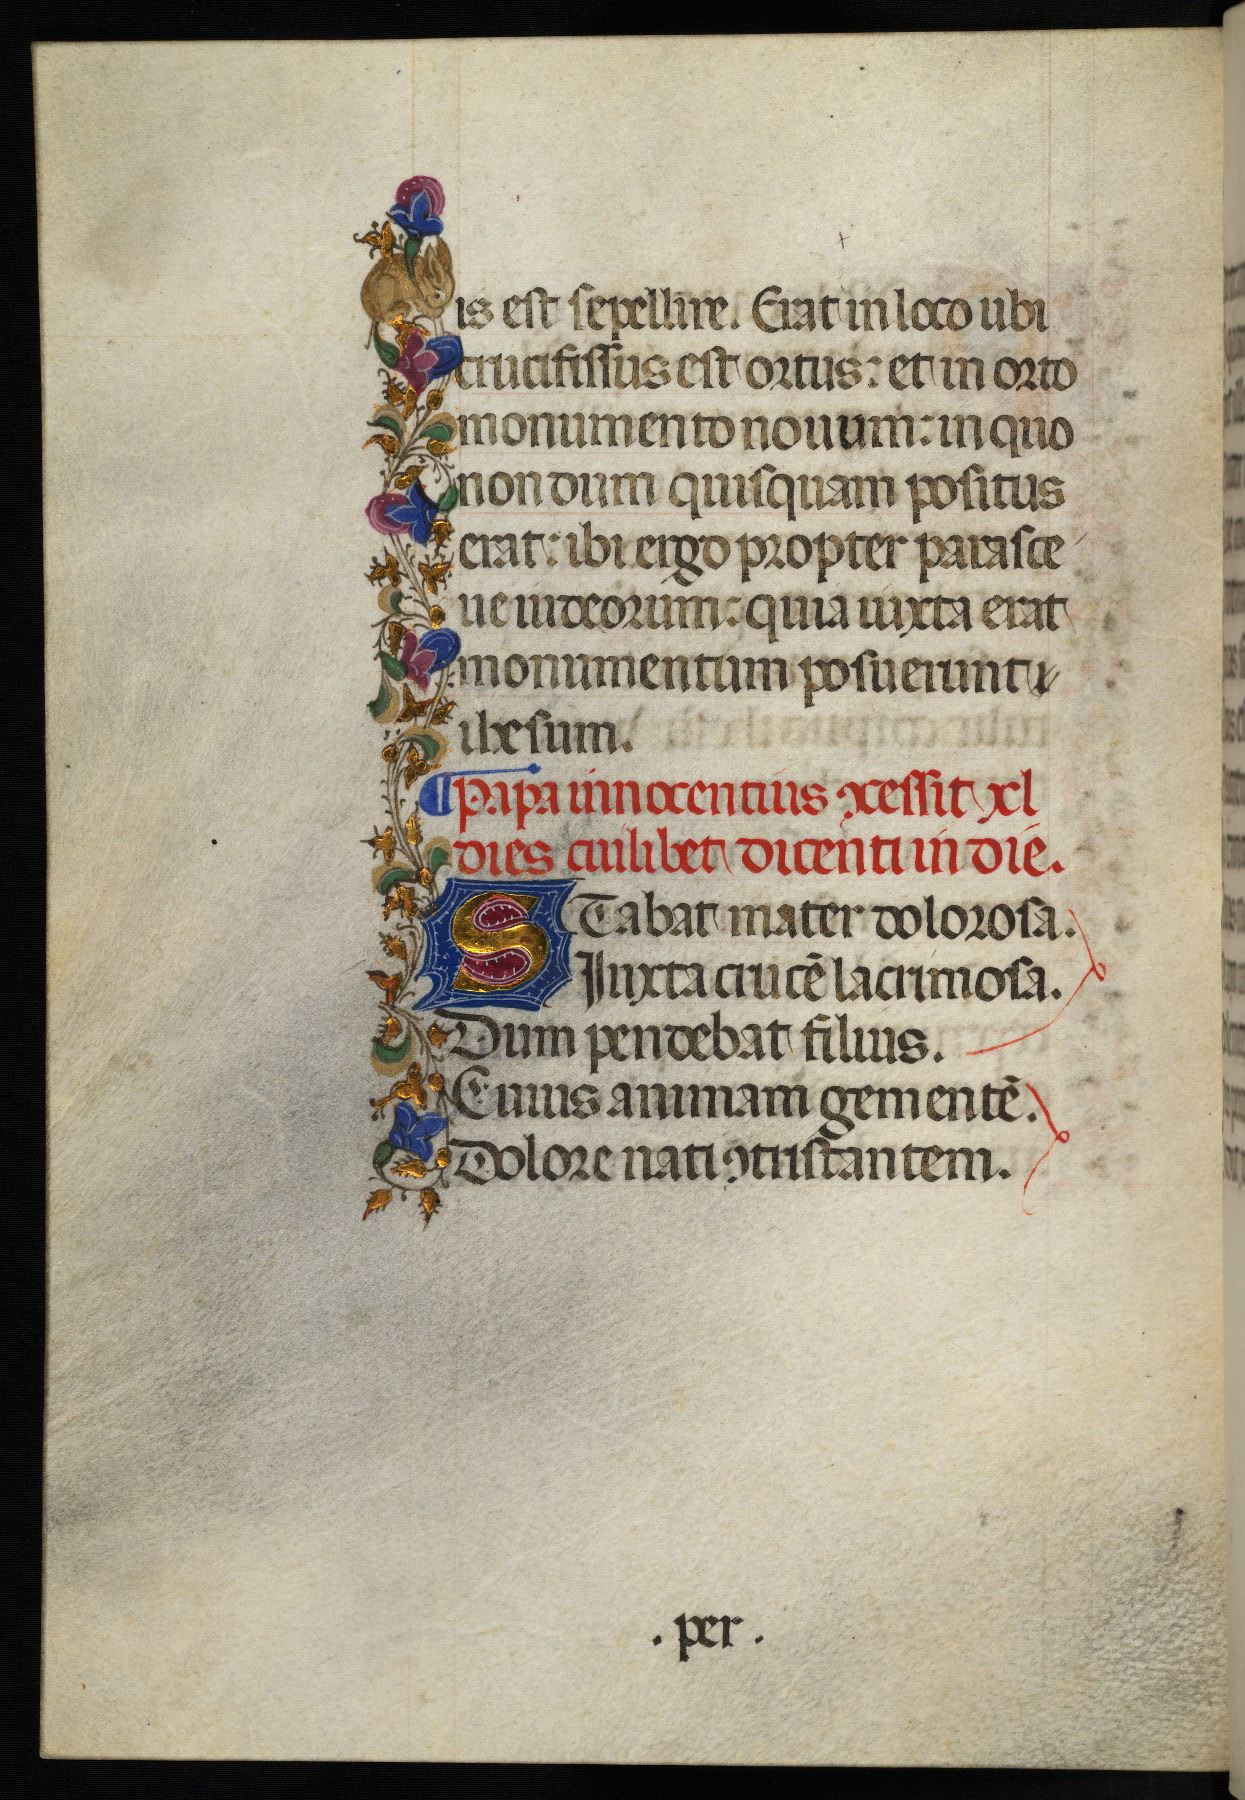 is est sepellire. Erat in loco ubi
crucifissus est ortus: et in orto
monumento nouum: in quo
non dum quisquam positus
erat: ibi ergo propter parasce
ue iudeorum: quia iuxta erat
monumentum posuerunt
ihesum.
Papa innocentius ꝯcessit xl
dies cuilibet dicenti in die.
STabat mater dolorosa.
Iuxta crucē lacrimosa.
Dum pendebat filius.
Cuius animam gementē.
Dolore nati ꝯtristantem.
. per .